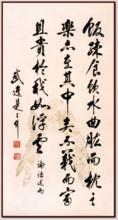 饭疏食饮水曲肱而枕之
乐亦在其中矣不义而富
且贵于我如浮云 论语述而